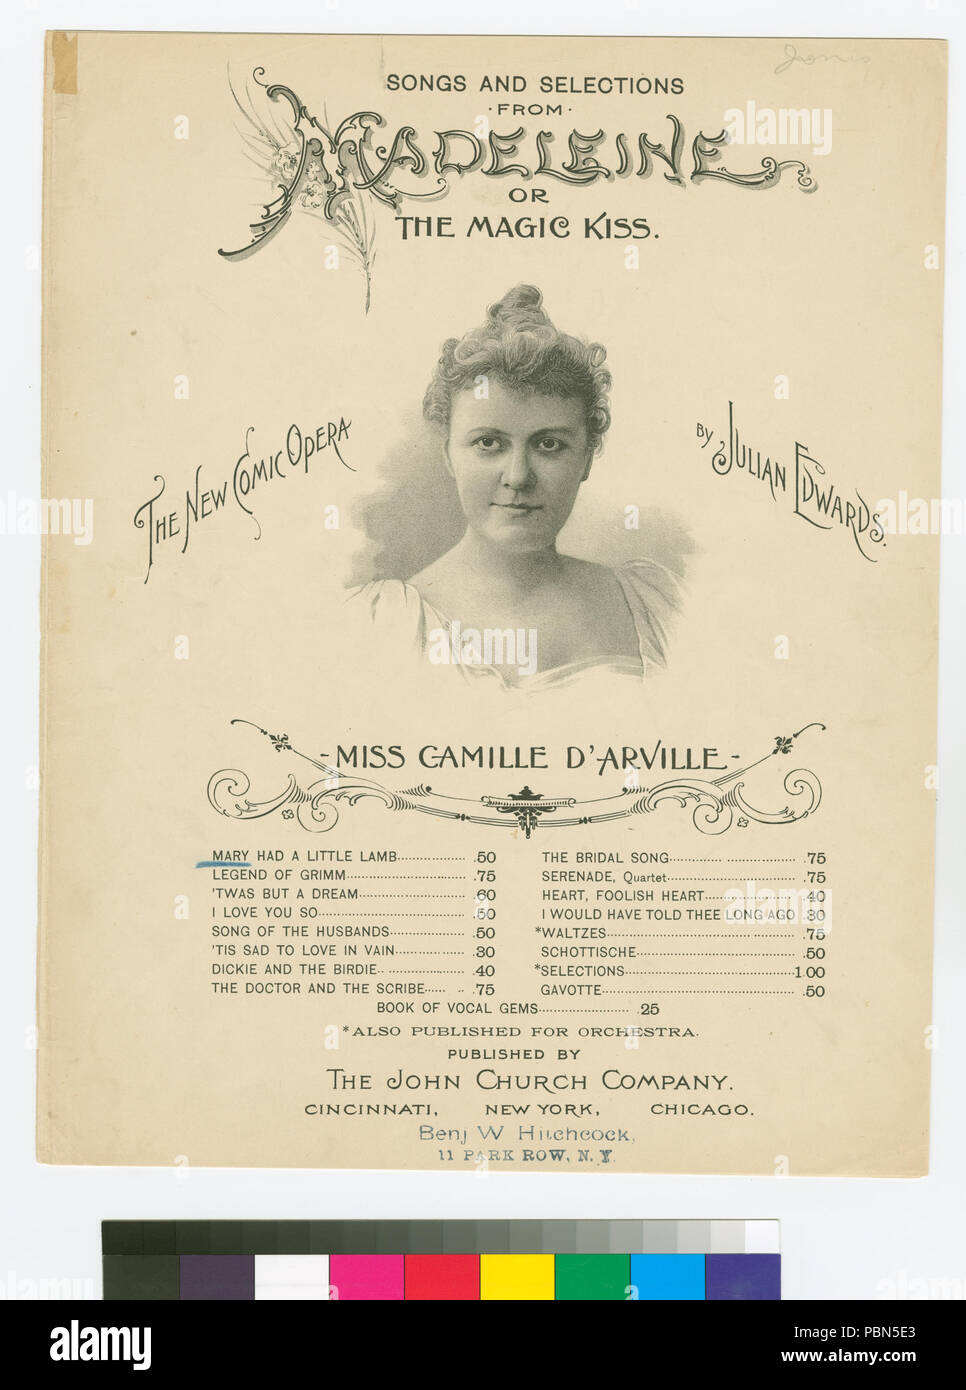 Jones
SONGS AND SELECTIONS
·FROM·
MADELEINE
OR
THE MAGIC KISS.
THE NEW COMIC OPERA
BY JULIAN EDWARDS.
-MISS CAMILLE D'ARVILLE-
MARY HAD A LITTLE LAMB .50
LEGEND OF GRIMM .75
'TWAS BUT A DREAM .60
I LOVE YOU SO .50
SONG OF THE HUSBANDS .50
'TIS SAD TO LOVE IN VAIN .30
DICKIE AND THE BIRDIE .40
THE DOCTOR AND THE SCRIBE .75
THE BRIDAL SONG .75
SERENADE, Quartet .75
HEART, FOOLISH HEART .40
I WOULD HAVE TOLD THEE LONG AGO .30
*WALTZES .75
SCHOTTISCHE .50
*SELECTIONS 1.00
GAVOTTE .50
BOOK OF VOCAL GEMS .25
*ALSO PUBLISHED FOR ORCHESTRA.
PUBLISHED BY
THE JOHN CHURCH COMPANY.
CINCINNATI, NEW YORK, CHICAGO.
Benj W Hitchcock,
11 PARK ROW, N.Y.
alamy
Image ID: PBN5E3
www.alamy.com